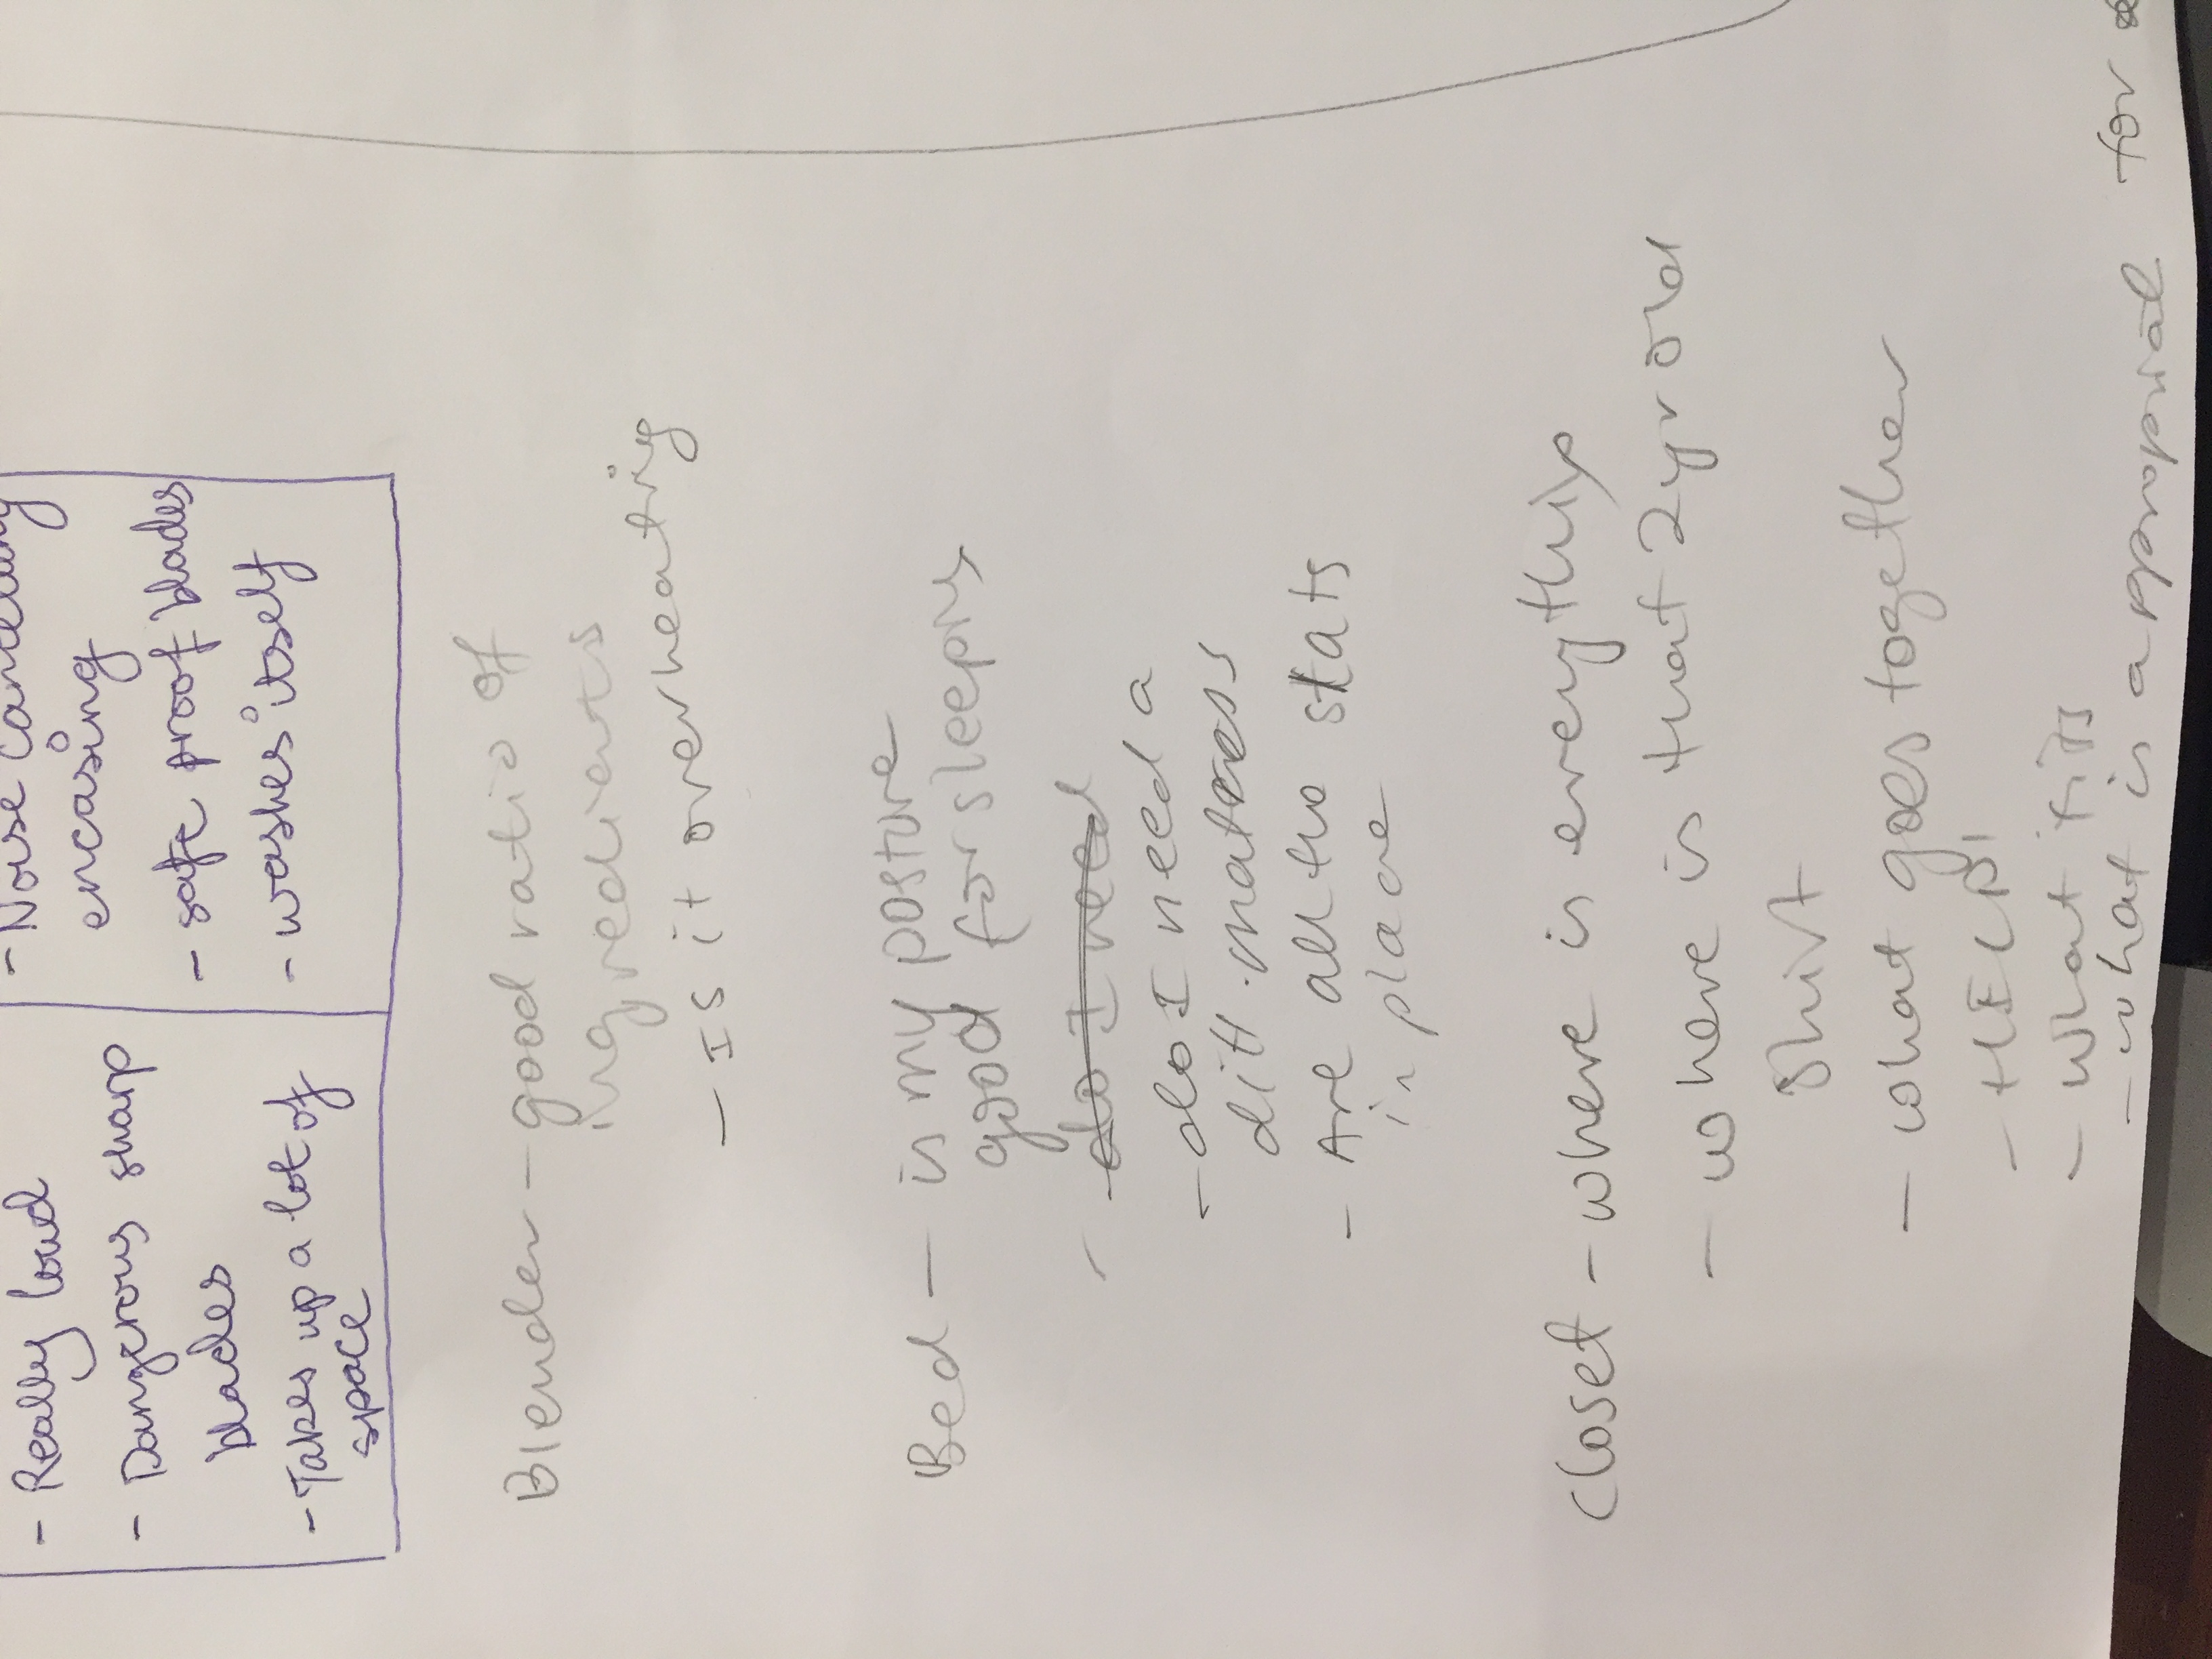 - Really loud
- Dangerous sharp
blades
- Takes up a lot of
space
- Noise cancelling
encasing
- safe proof blades
- washes itself
Blender - good ratio of
ingredients
- Is it overheating
Bed - is my posture
good for sleeping
- do I need
- do I need a
diff. matress
- Are all the slats
in place
Closet - where is everything
- where is that 2 yr old
shirt
- what goes together
- HELP!
- what fits
- what is appropriat for